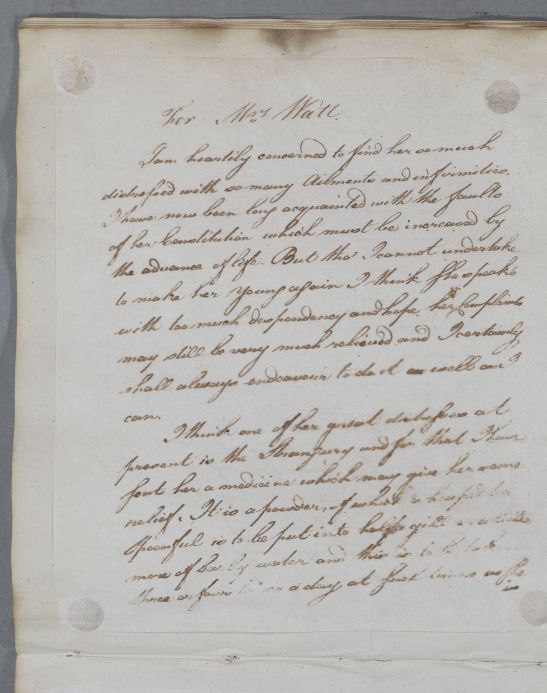 For Mrs Wall.
I am heartily concerned to find her so much
distressed with so many Ailments and infirmities.
I have now been long acquainted with the faults
of her Constitution which must be increased by
the advance of life. But tho I cannot undertake
to make her young again I think she speaks
with too much despondency and hope, her Complaints
may still be very much relieved and I certainly
shall always endeavour to do it as well as I
can.
I think one of her great distresses at
present is the Strangury and for that I have
sent her a medicine which may give her some
relief. It is a powder, of which a heaped tea
spoonful is to be put into half a gill or a little
more of barley water and this is to be taken
three or four times a day at such times as she
is